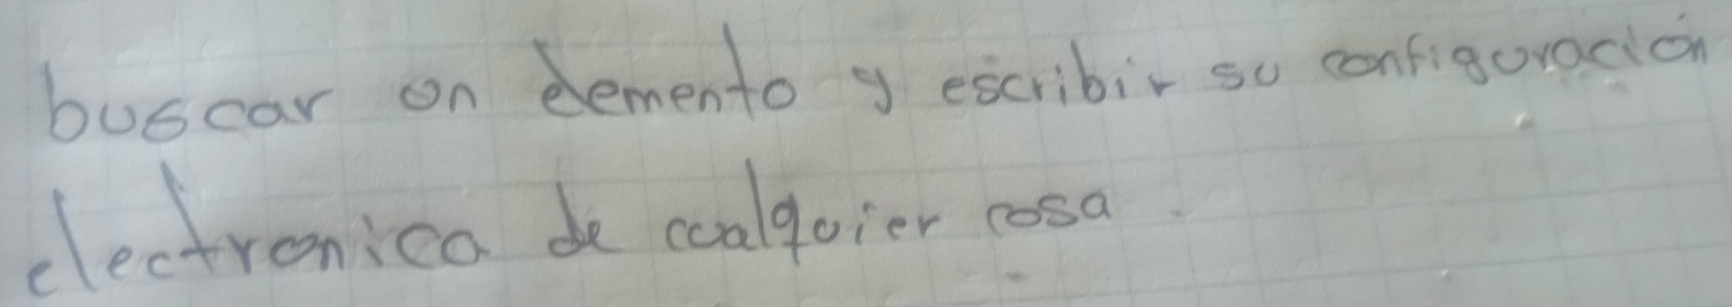 buscar un elemento y escribir su configuración
electronica de cualquier cosa.